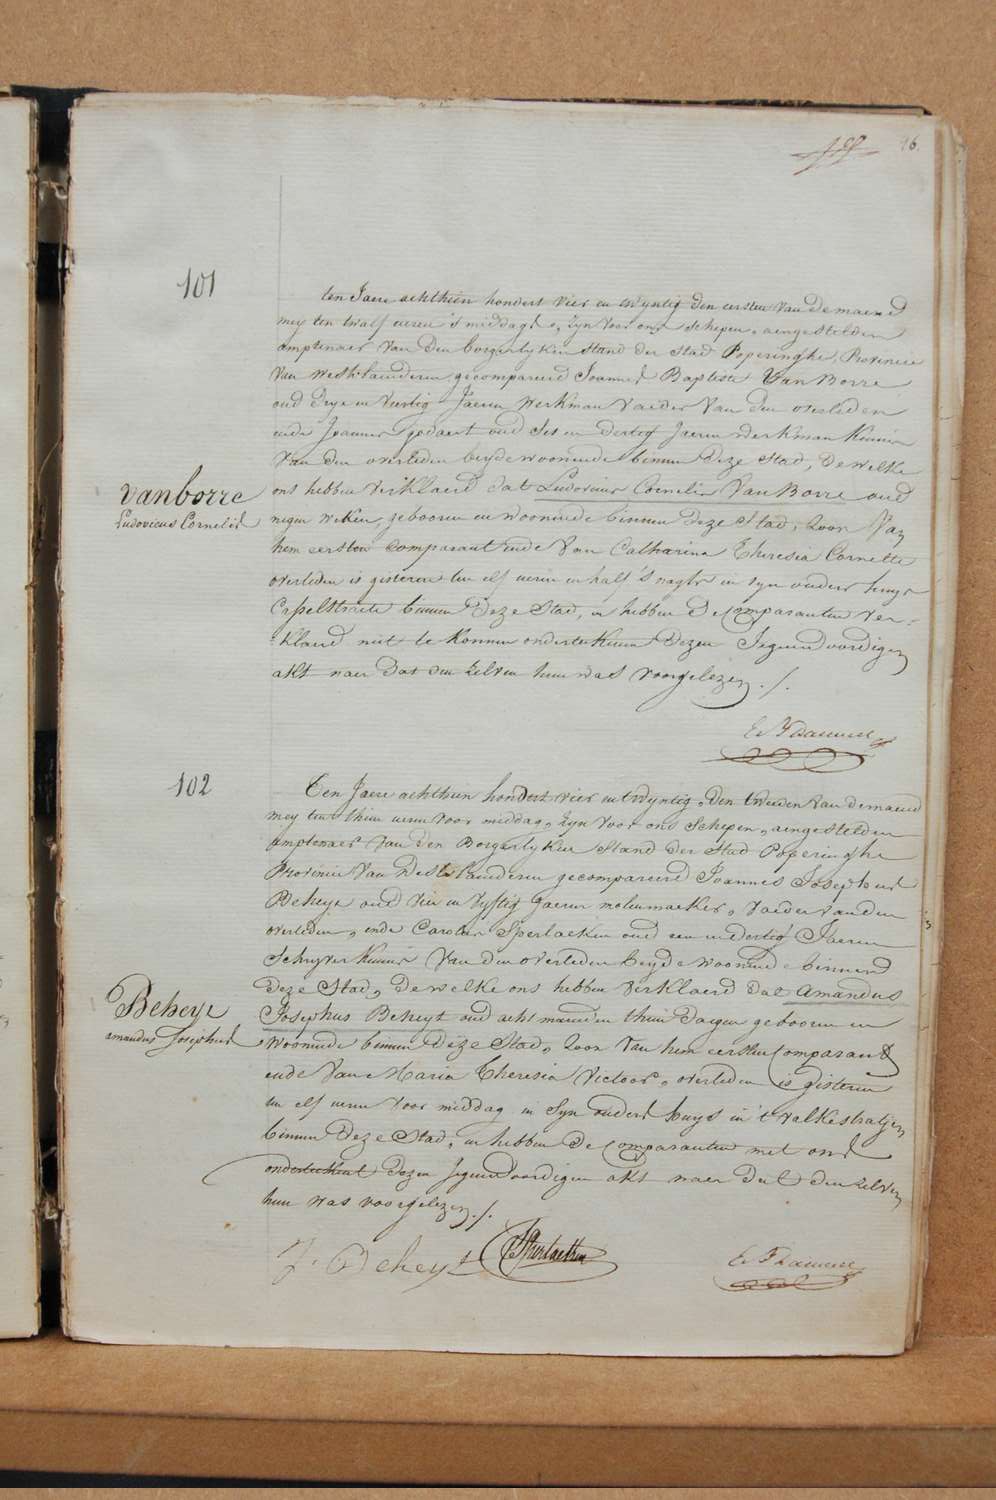 16.
101
ten Jaere achthien hondert vier en twyntig den eersten van de maend
mey ten twalf ueren 's middags, zyn voor ons schepen, aengestelden
amptenaer van den borgerlyken stand der stad Poperinghe, Provincie
van westvlaenderen, gecompareerd Joannes Baptiste Van Borre
oud drye en veertig Jaeren werkman vaeder van den overleden
ende Joannes godaert oud ses en dertig Jaeren werkman kennis
van den overleden beyde woonende binnen deze stad, dewelke
vanborre
ons hebben verklaerd dat Ludovicus Cornelis Van Borre oud
Ludovicus Cornelis
negen weken, gebooren en woonende binnen deze stad, zoon van
hem eersten comparant ende van Catharina Theresia Cornette
overleden is gisteren ten elf ueren en half 's nagts in syn ouders huys
Casselstraete binnen deze stad, en hebben de comparanten ver-
-klaerd niet te konnen onderteekenen dezen Tegenwoordigen
akt naer dat den zelven hun was voorgelezen ./.
102
Ten Jaere achthien hondert vier en twyntig, den tweeden van de maend
mey ten thien ueren voor middag, zyn voor ons schepen, aengestelden
amptenaer van den Borgerlyken stand der stad Poperinghe
Provincie van Westvlaenderen gecompareerd Joannes Josephus
Beheyt oud vier en vyftig Jaeren molenmaeker, vaeder van den
overleden, ende Carolus Sperlaeken oud een en dertig Jaeren
Schryver kennis van den overleden beyde woonende binnen
deze Stad, dewelke ons hebben verklaerd dat Amandus
Beheyt
Josephus Beheyt oud acht maenden thien daegen gebooren en
amandus Josephus
woonende binnen deze stad, zoon van hem eersten comparant
ende van Maria Theresia Victoor, overleden is gisteren
ten elf ueren voor middag in syn ouders huys in 't valkestraetjen
binnen deze stad, en hebben de comparanten met ons
onderteekent dezen Tegenwoordigen akt naer dat den zelven
hun was voorgelezen ./.
J. Beheyt Sperlaeken